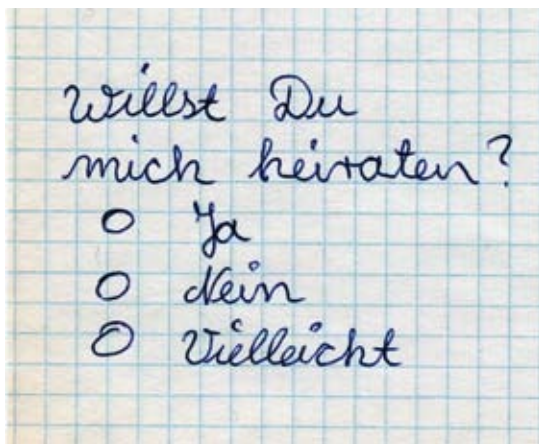 Willst Du
mich heiraten?
O Ja
O Nein
O Vielleicht